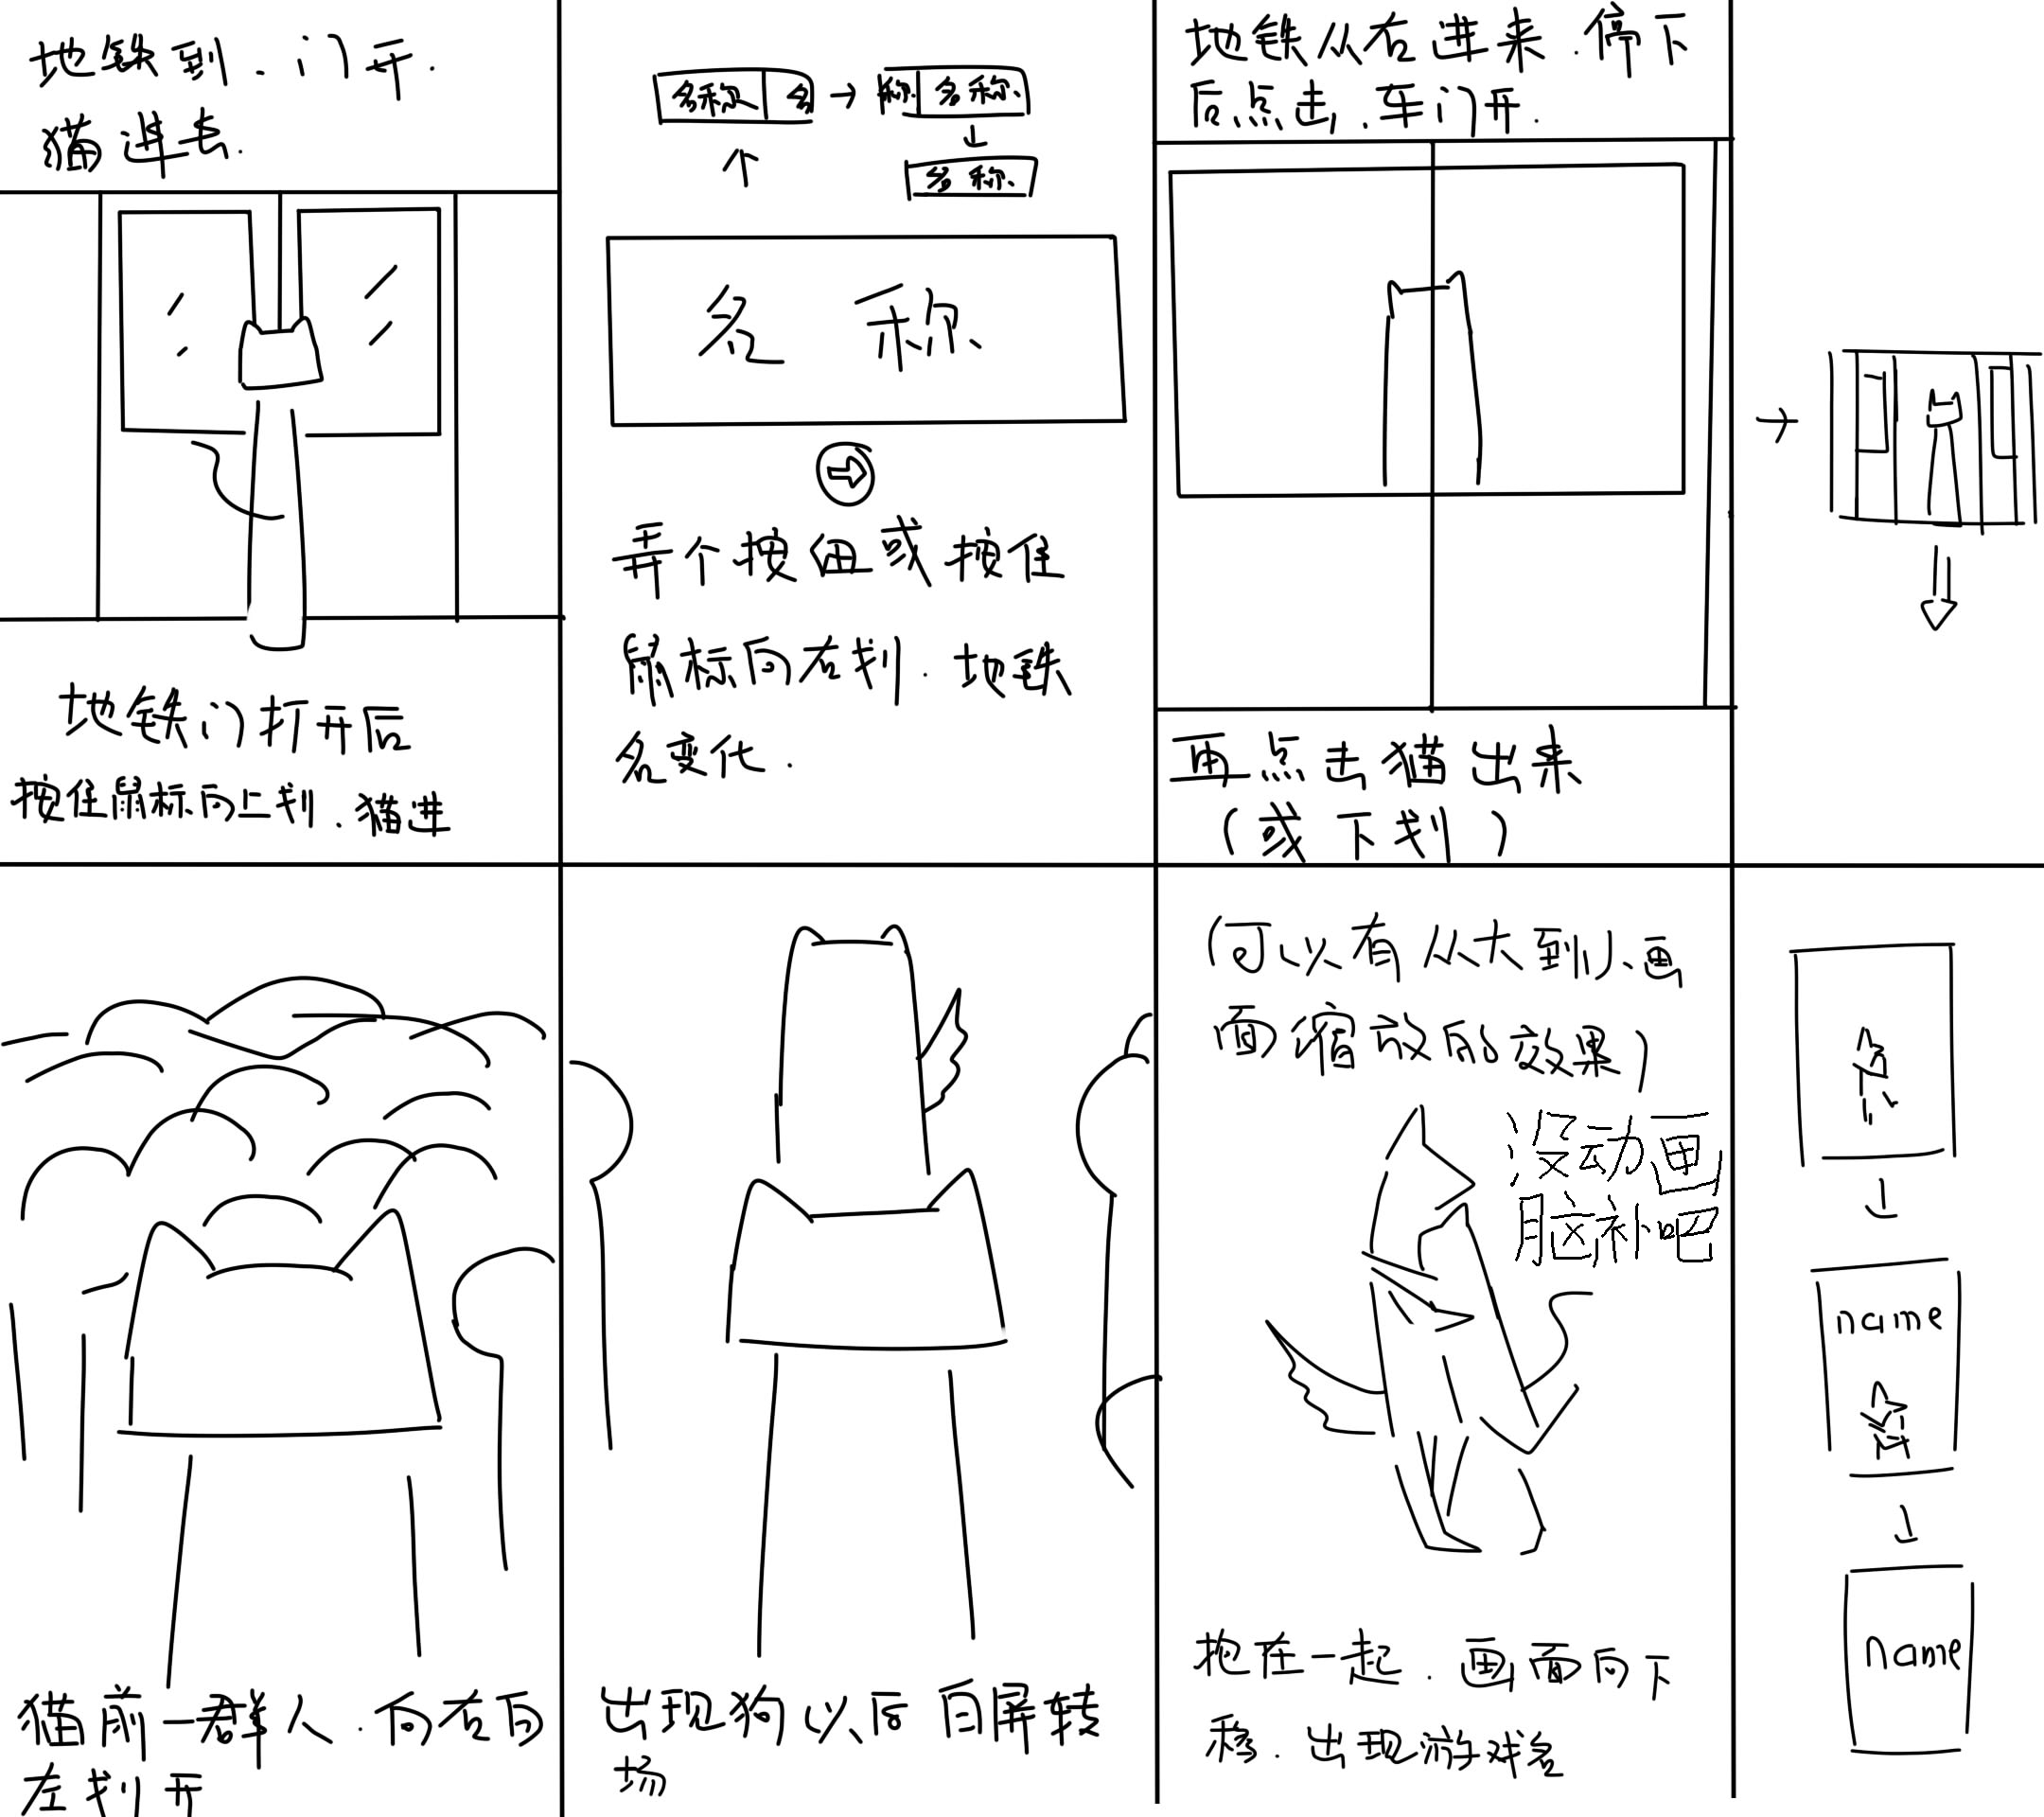 地铁到.门开.
猫进去.
地铁门打开后
按住鼠标向上划.猫进
名称 名
称 名称
名称
名 称
弄个按钮或按住
鼠标向左划.地铁
名变化.
地铁从右进来.停下
后点击.车门开.
再点击猫出来
(或下划)
猫前一群人.向右向
左划开
出现狗以后白屏转
场
(可以有从大到小画
面缩放的效果)
没动画
脑补吧
抱在一起.画面向下
移.出现游戏名
name
name